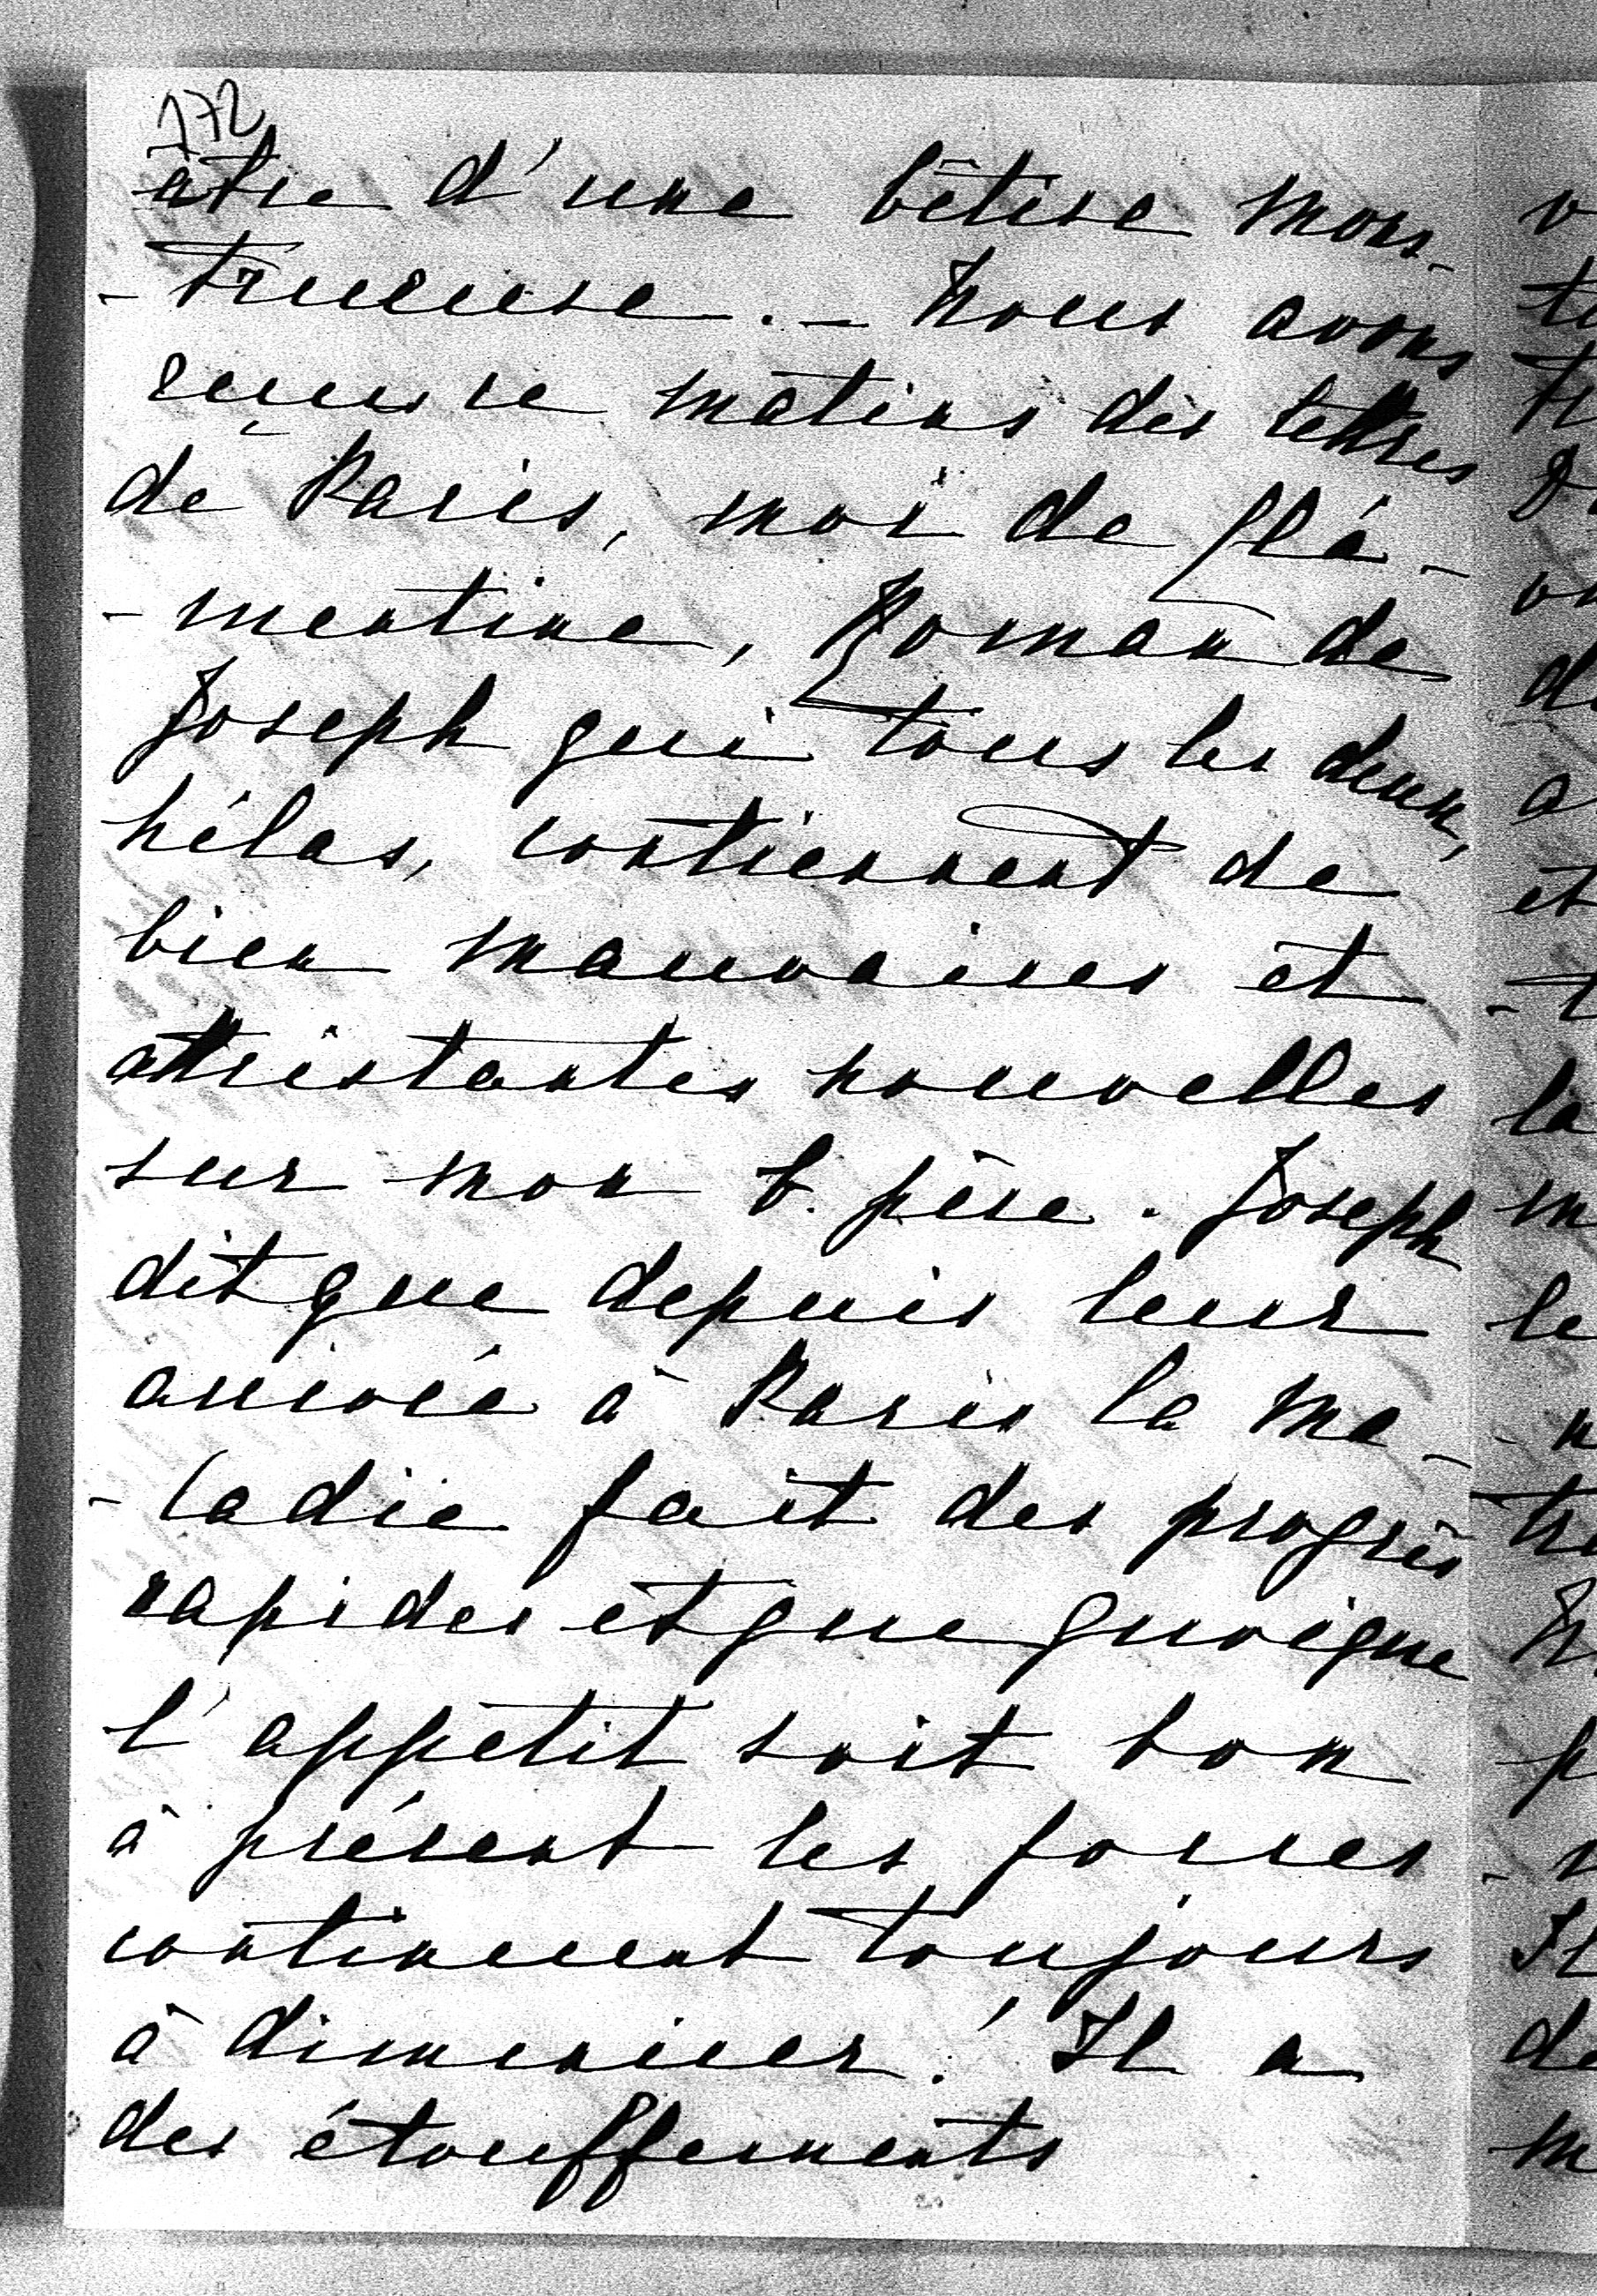 172
âtre d'une bêtise mons-
-trueuse. – Nous avons
reçu ce matins des lettres
de Paris, moi de Clé-
-mentine, Roman de
Joseph qui tous les deux,
hélas, contiennent de
bien mauvaises et
attristantes nouvelles
sur mon b. père. Joseph
dit que depuis leur
arrivée à Paris la ma-
-ladie fait des progrès
rapides et que quoique
l'appétit soit bon
à présent les forces
continuent toujours
à diminuer! Il a
des étouffements